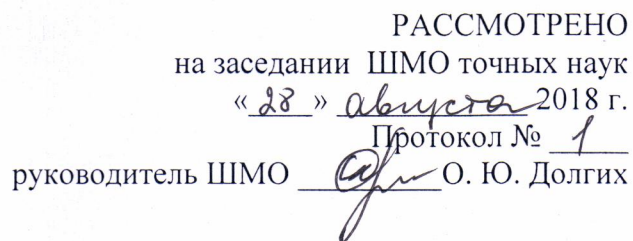 РАССМОТРЕНО
на заседании ШМО точных наук
«28» августа 2018 г.
Протокол № 1
руководитель ШМО ________ О. Ю. Долгих